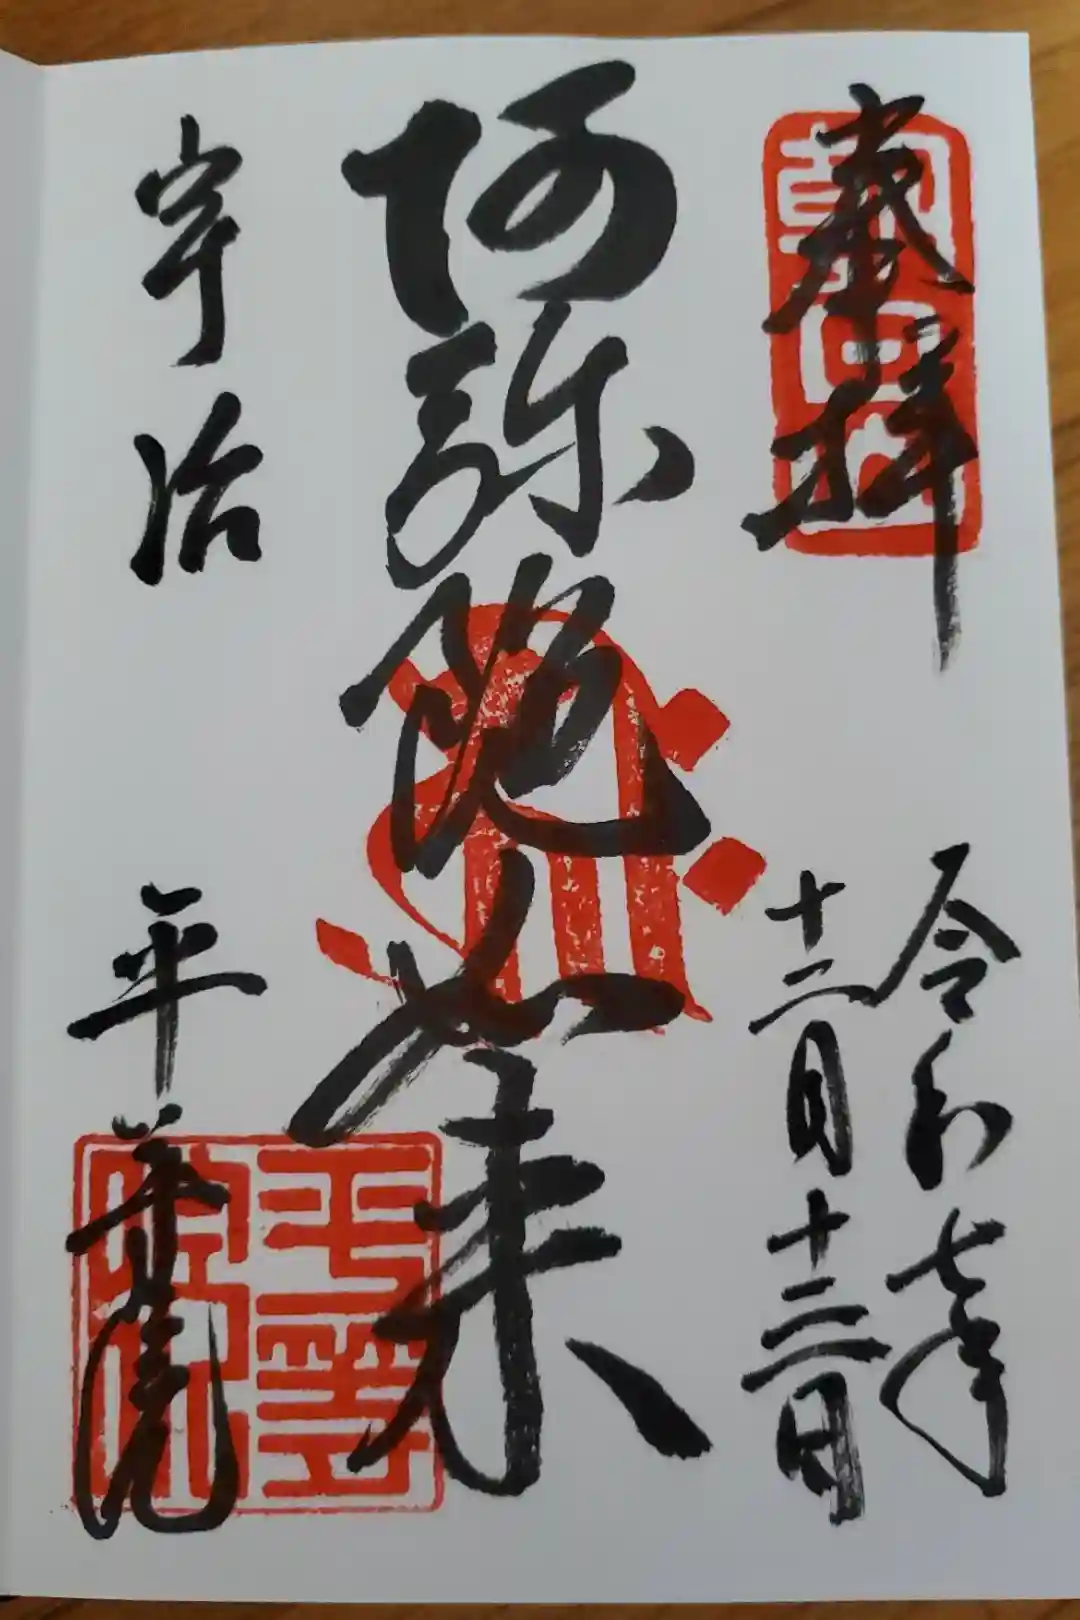 奉拝
朝日山
令和七年
十二月十三日
阿弥陀如来
宇治
平等院
平等
院印